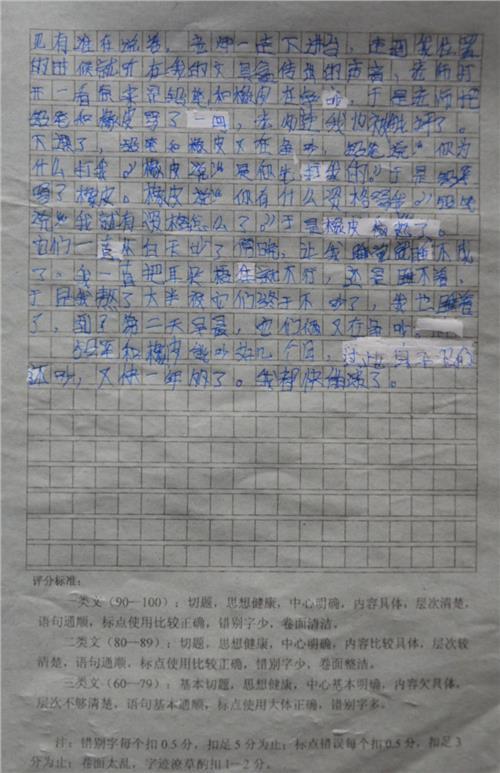 见有谁在说卷，老师一走下讲台，走到我位置
的时候就听在我的文具盒传出的声音，老师打
开一看原来是铅笔和橡皮在争吵，于是老师把
铅笔和橡皮骂了一回，
下课了，铅笔和橡皮又在争吵，铅笔说“你为
什么打我”橡皮说“是你先打我的”于是铅笔
骂了橡皮。橡皮说“你有什么资格骂我”铅笔
说“我就有资格怎么了”于是橡皮
它们一直从白天吵了到晚，让我睡觉都睡不成
了。我一直把耳朵捂住都不行，还是睡不着，
于是我熬了大半夜它们终于不吵了，我也睡着
了，到了第二天早晨，他们俩又在争吵。
铅笔和橡皮就吵好几个月，
还吵，又快一年的了。我都快崩溃了。
评分标准：
一类文（90—100）：切题，思想健康，中心明确，内容具体，层次清楚，
语句通顺，标点使用比较正确，错别字少，卷面清洁。
二类文（80—89）：切题，思想健康，中心明确，内容比较具体，层次较
清楚，语句通顺，标点使用比较正确，错别字少，卷面整洁。
三类文（60—79）：基本切题，思想健康，中心基本明确，内容欠具体，
层次不够清楚，语句基本通顺，标点使用大体正确，错别字多。
注：错别字每个扣0.5分，扣足5分为止；标点错误每个扣0.5分，扣足3
分为止；卷面太乱，字迹潦草酌扣1—2分。